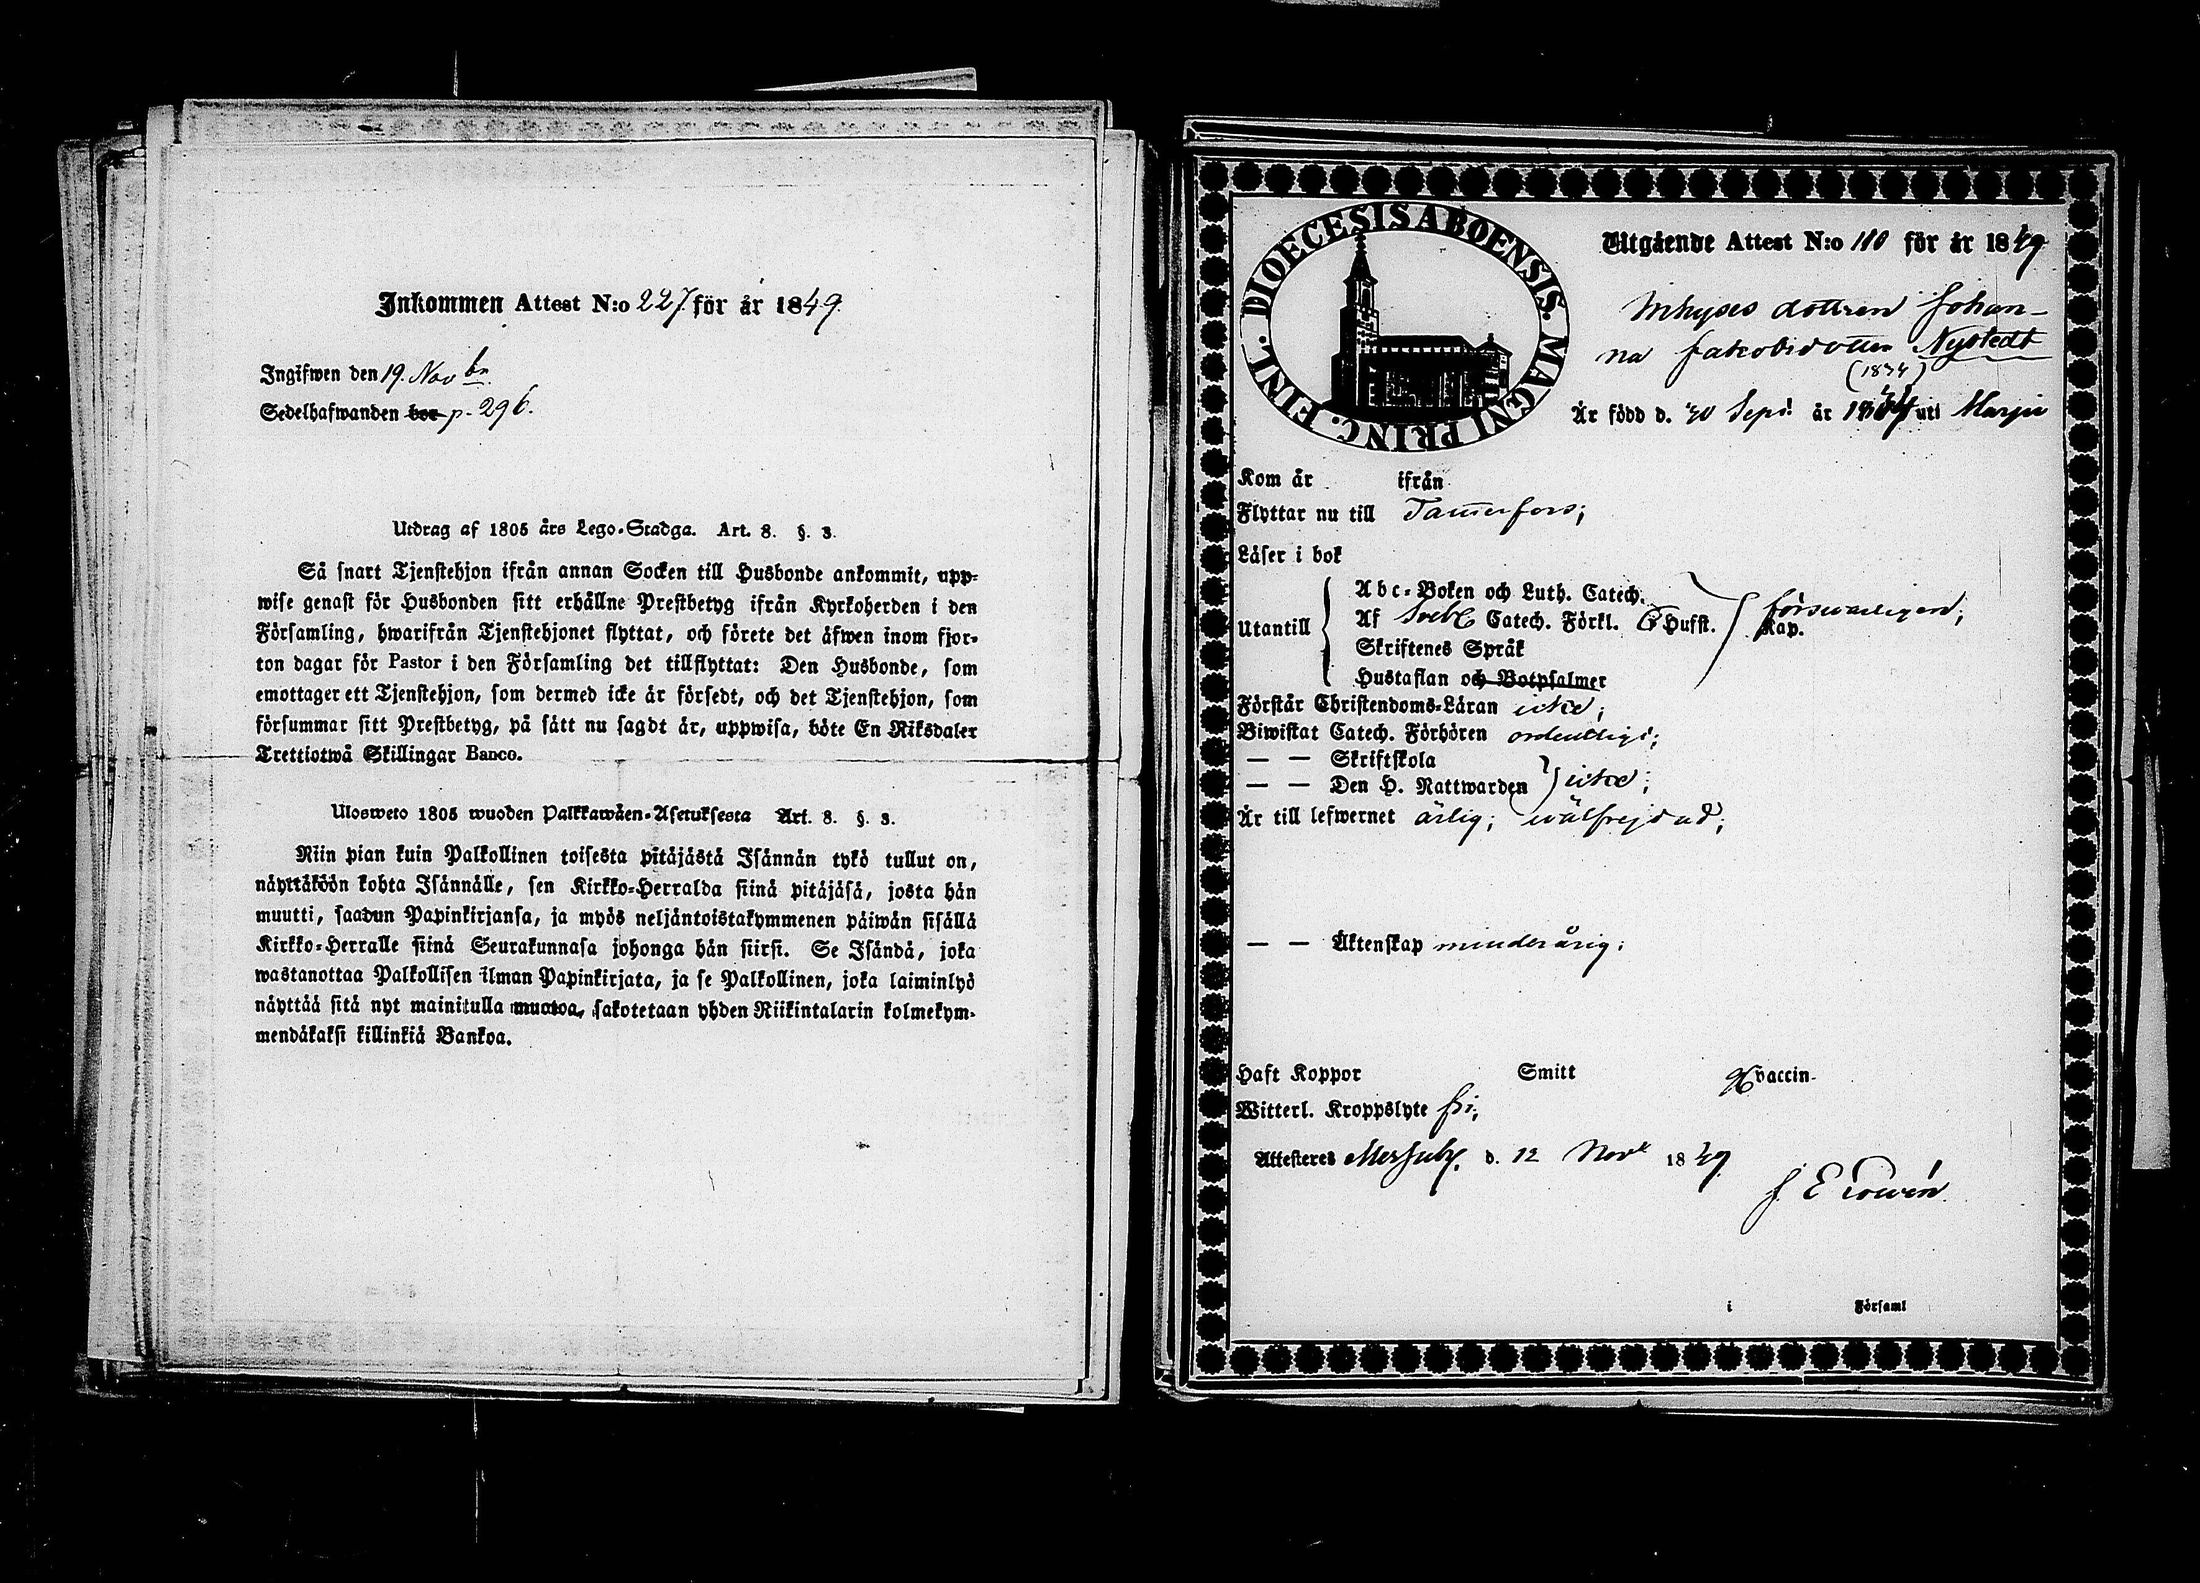 Inkommen Attest N:o 227. för år 1849.
Ingifwen den 19. Novbr.
Sedelhafwanden bor p. 296.
Utdrag af 1805 års Lego-Stadga. Art. 8. §. 3.
Så snart Tjenstehjon ifrån annan Socken till Husbonde ankommit, upp-
wise genast för Husbonden sitt erhållne Prestbetyg ifrån Kyrkoherden i den
Församling, hwarifrån Tjenstehjonet flyttat, och förete det äfwen inom fjor-
ton dagar för Pastor i den Församling det tillflyttat: Den Husbonde, som
emottager ett Tjenstehjon, som dermed icke är försedt, och det Tjenstehjon, som
försummar sitt Prestbetyg, på sätt nu sagdt är, uppwisa, böte En Riksdaler
Trettiotwå Skillingar Banco.
Ulosweto 1805 wuoden Palkkawäen-Asetuksesta Art. 8. §. 3.
Niin pian kuin Palkollinen toisesta pitäjästä Isännän tykö tullut on,
näyttäköön kohta Isännälle, sen Kirkko-Herralda siinä pitäjäsä, josta hän
muutti, saadun Papinkirjansa, ja myös neljäntoistakymmenen päiwän sisällä
Kirkko-Herralle siinä Seurakunnasa johonga hän siirsi. Se Isändä, joka
wastanottaa Palkollisen ilman Papinkirjata, ja se Palkollinen, joka laiminlyö
näyttää sitä nyt mainitulla muotoa, sakotetaan yhden Riikintalarin kolmekym-
mendäkaksi killinkiä Bankoa.
DIOECESIS ABOENSIS. MAGNI PRINC. FINL.
Utgående Attest N:o 110 för år 1849
Inhyses dottren Johan-
na Jakobsdotter Nystedt
(1834)
Är född d. 30 Sept. år 1834 uti
Kom år ifrån
Flyttar nu till Tammerfors;
Läser i bok
Utantill
Abc-Boken och Luth. Catech.
Af Sveb. Catech. Förkl. Hufst. Kap. försvarligen;
Skriftenes Språk
Hustaflan och Botpsalmer
Förstår Christendoms-Läran icke;
Biwistat Catech. Förhören ordentligt;
— — Skriftskola
— — Den H. Nattwarden icke;
Är till lefwernet ärlig; wälfrejdad;
— — Äktenskap minderårig;
Haft Koppor Smitt vaccin.
Witterl. Kroppslyte fri;
Attesteres d. 12 Nov. 1849.
i Församl